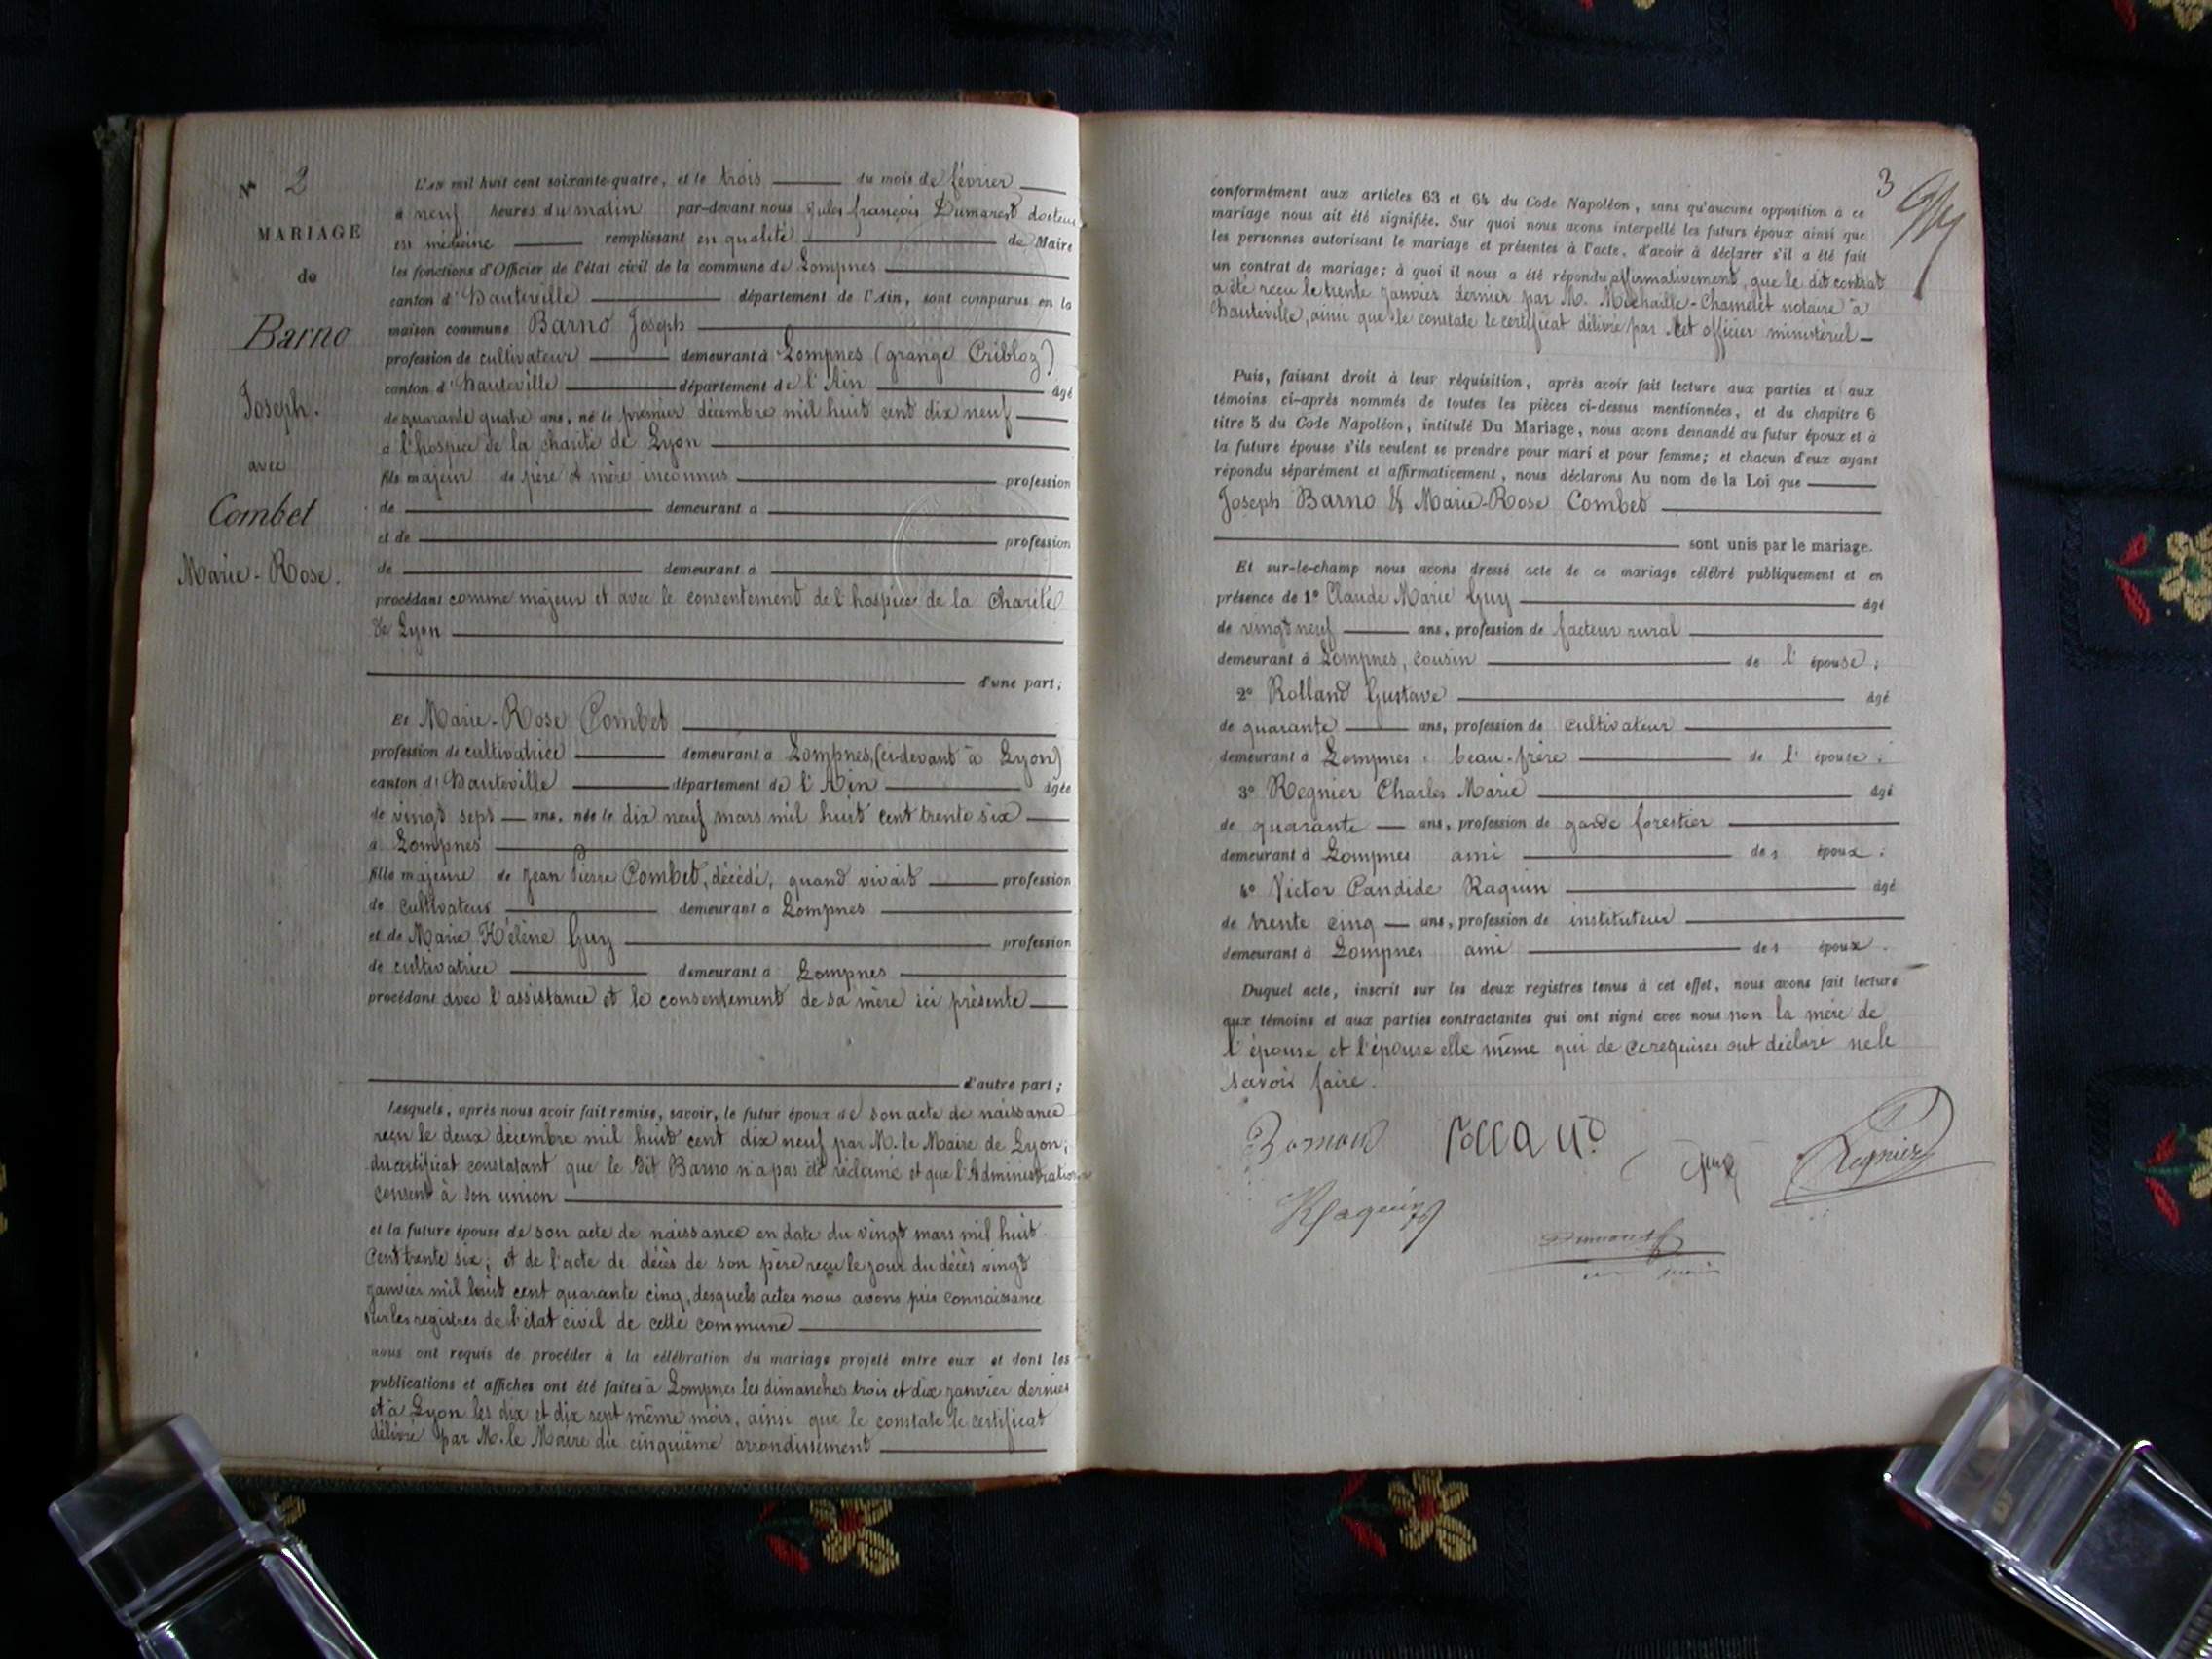 N° 2
MARIAGE
de
Barno
Joseph.
avec
Combet
Marie-Rose.
L'an mil huit cent soixante-quatre, et le trois du mois de février
à neuf heures du matin par-devant nous Jules françois Dumarest docteur
en médecine remplissant en qualité de Maire
les fonctions d'Officier de l'état civil de la commune de Lompnes
canton d'Hauteville département de l'Ain, sont comparus en la
maison commune Barno Joseph
profession de cultivateur demeurant à Lompnes (grange Cribloz)
canton d'Hauteville département de l'Ain âgé
de quarante quatre ans, né le premier décembre mil huit cent dix neuf
à l'hospice de la charité de Lyon
fils majeur de père & mère inconnus profession
de demeurant à
et de profession
de demeurant à
procédant comme majeur et avec le consentement de l'hospice de la Charité
de Lyon
d'une part;
Et Marie-Rose Combet
profession de cultivatrice demeurant à Lompnes, (ci-devant à Lyon)
canton d'Hauteville département de l'Ain âgée
de vingt sept ans, née le dix neuf mars mil huit cent trente six
à Lompnes
fille majeure de Jean Pierre Combet, décédé, quand vivait profession
de cultivateur demeurant à Lompnes
et de Marie Hélène Guy profession
de cultivatrice demeurant à Lompnes
procédant avec l'assistance et le consentement de sa mère ici présente
d'autre part;
Lesquels, après nous avoir fait remise, savoir, le futur époux de son acte de naissance
reçu le deux décembre mil huit cent dix neuf par M. le Maire de Lyon;
du certificat constatant que le dit Barno n'a pas été réclamé et que l'Administration
consent à son union
et la future épouse de son acte de naissance en date du vingt mars mil huit
cent trente six; et de l'acte de décès de son père reçu le jour du décès vingt
janvier mil huit cent quarante cinq, desquels actes nous avons pris connaissance
sur les registres de l'état civil de cette commune
nous ont requis de procéder à la célébration du mariage projeté entre eux et dont les
publications et affiches ont été faites à Lompnes les dimanches trois et dix janvier dernier
et à Lyon les dix et dix sept même mois, ainsi que le constate le certificat
délivré par M. le Maire du cinquième arrondissement
3
conformément aux articles 63 et 64 du Code Napoléon, sans qu'aucune opposition à ce
mariage nous ait été signifiée. Sur quoi nous avons interpellé les futurs époux ainsi que
les personnes autorisant le mariage et présentes à l'acte, d'avoir à déclarer s'il a été fait
un contrat de mariage; à quoi il nous a été répondu affirmativement, que le dit contrat
a été reçu le trente janvier dernier par M. Michaille-Chamelet notaire à
Hauteville, ainsi que le constate le certificat délivré par cet officier ministériel
Puis, faisant droit à leur réquisition, après avoir fait lecture aux parties et aux
témoins ci-après nommés de toutes les pièces ci-dessus mentionnées, et du chapitre 6
titre 5 du Code Napoléon, intitulé Du Mariage, nous avons demandé au futur époux et à
la future épouse s'ils veulent se prendre pour mari et pour femme; et chacun d'eux ayant
répondu séparément et affirmativement, nous déclarons Au nom de la Loi que
Joseph Barno & Marie-Rose Combet
sont unis par le mariage.
Et sur-le-champ nous avons dressé acte de ce mariage célébré publiquement et en
présence de 1° Claude Marie Guy âgé
de vingt neuf ans, profession de facteur rural
demeurant à Lompnes, cousin de l'épouse;
2° Rolland Gustave âgé
de quarante ans, profession de cultivateur
demeurant à Lompnes, beau-frère de l'épouse;
3° Regnier Charles Marie âgé
de quarante ans, profession de garde forestier
demeurant à Lompnes ami des époux;
4° Victor Candide Raquin âgé
de trente cinq ans, profession de instituteur
demeurant à Lompnes ami des époux.
Duquel acte, inscrit sur les deux registres tenus à cet effet, nous avons fait lecture
aux témoins et aux parties contractantes qui ont signé avec nous non la mère de
l'épouse et l'épouse elle même qui de ce requises ont déclaré ne le
savoir faire.
Guy Regnier
Raquin